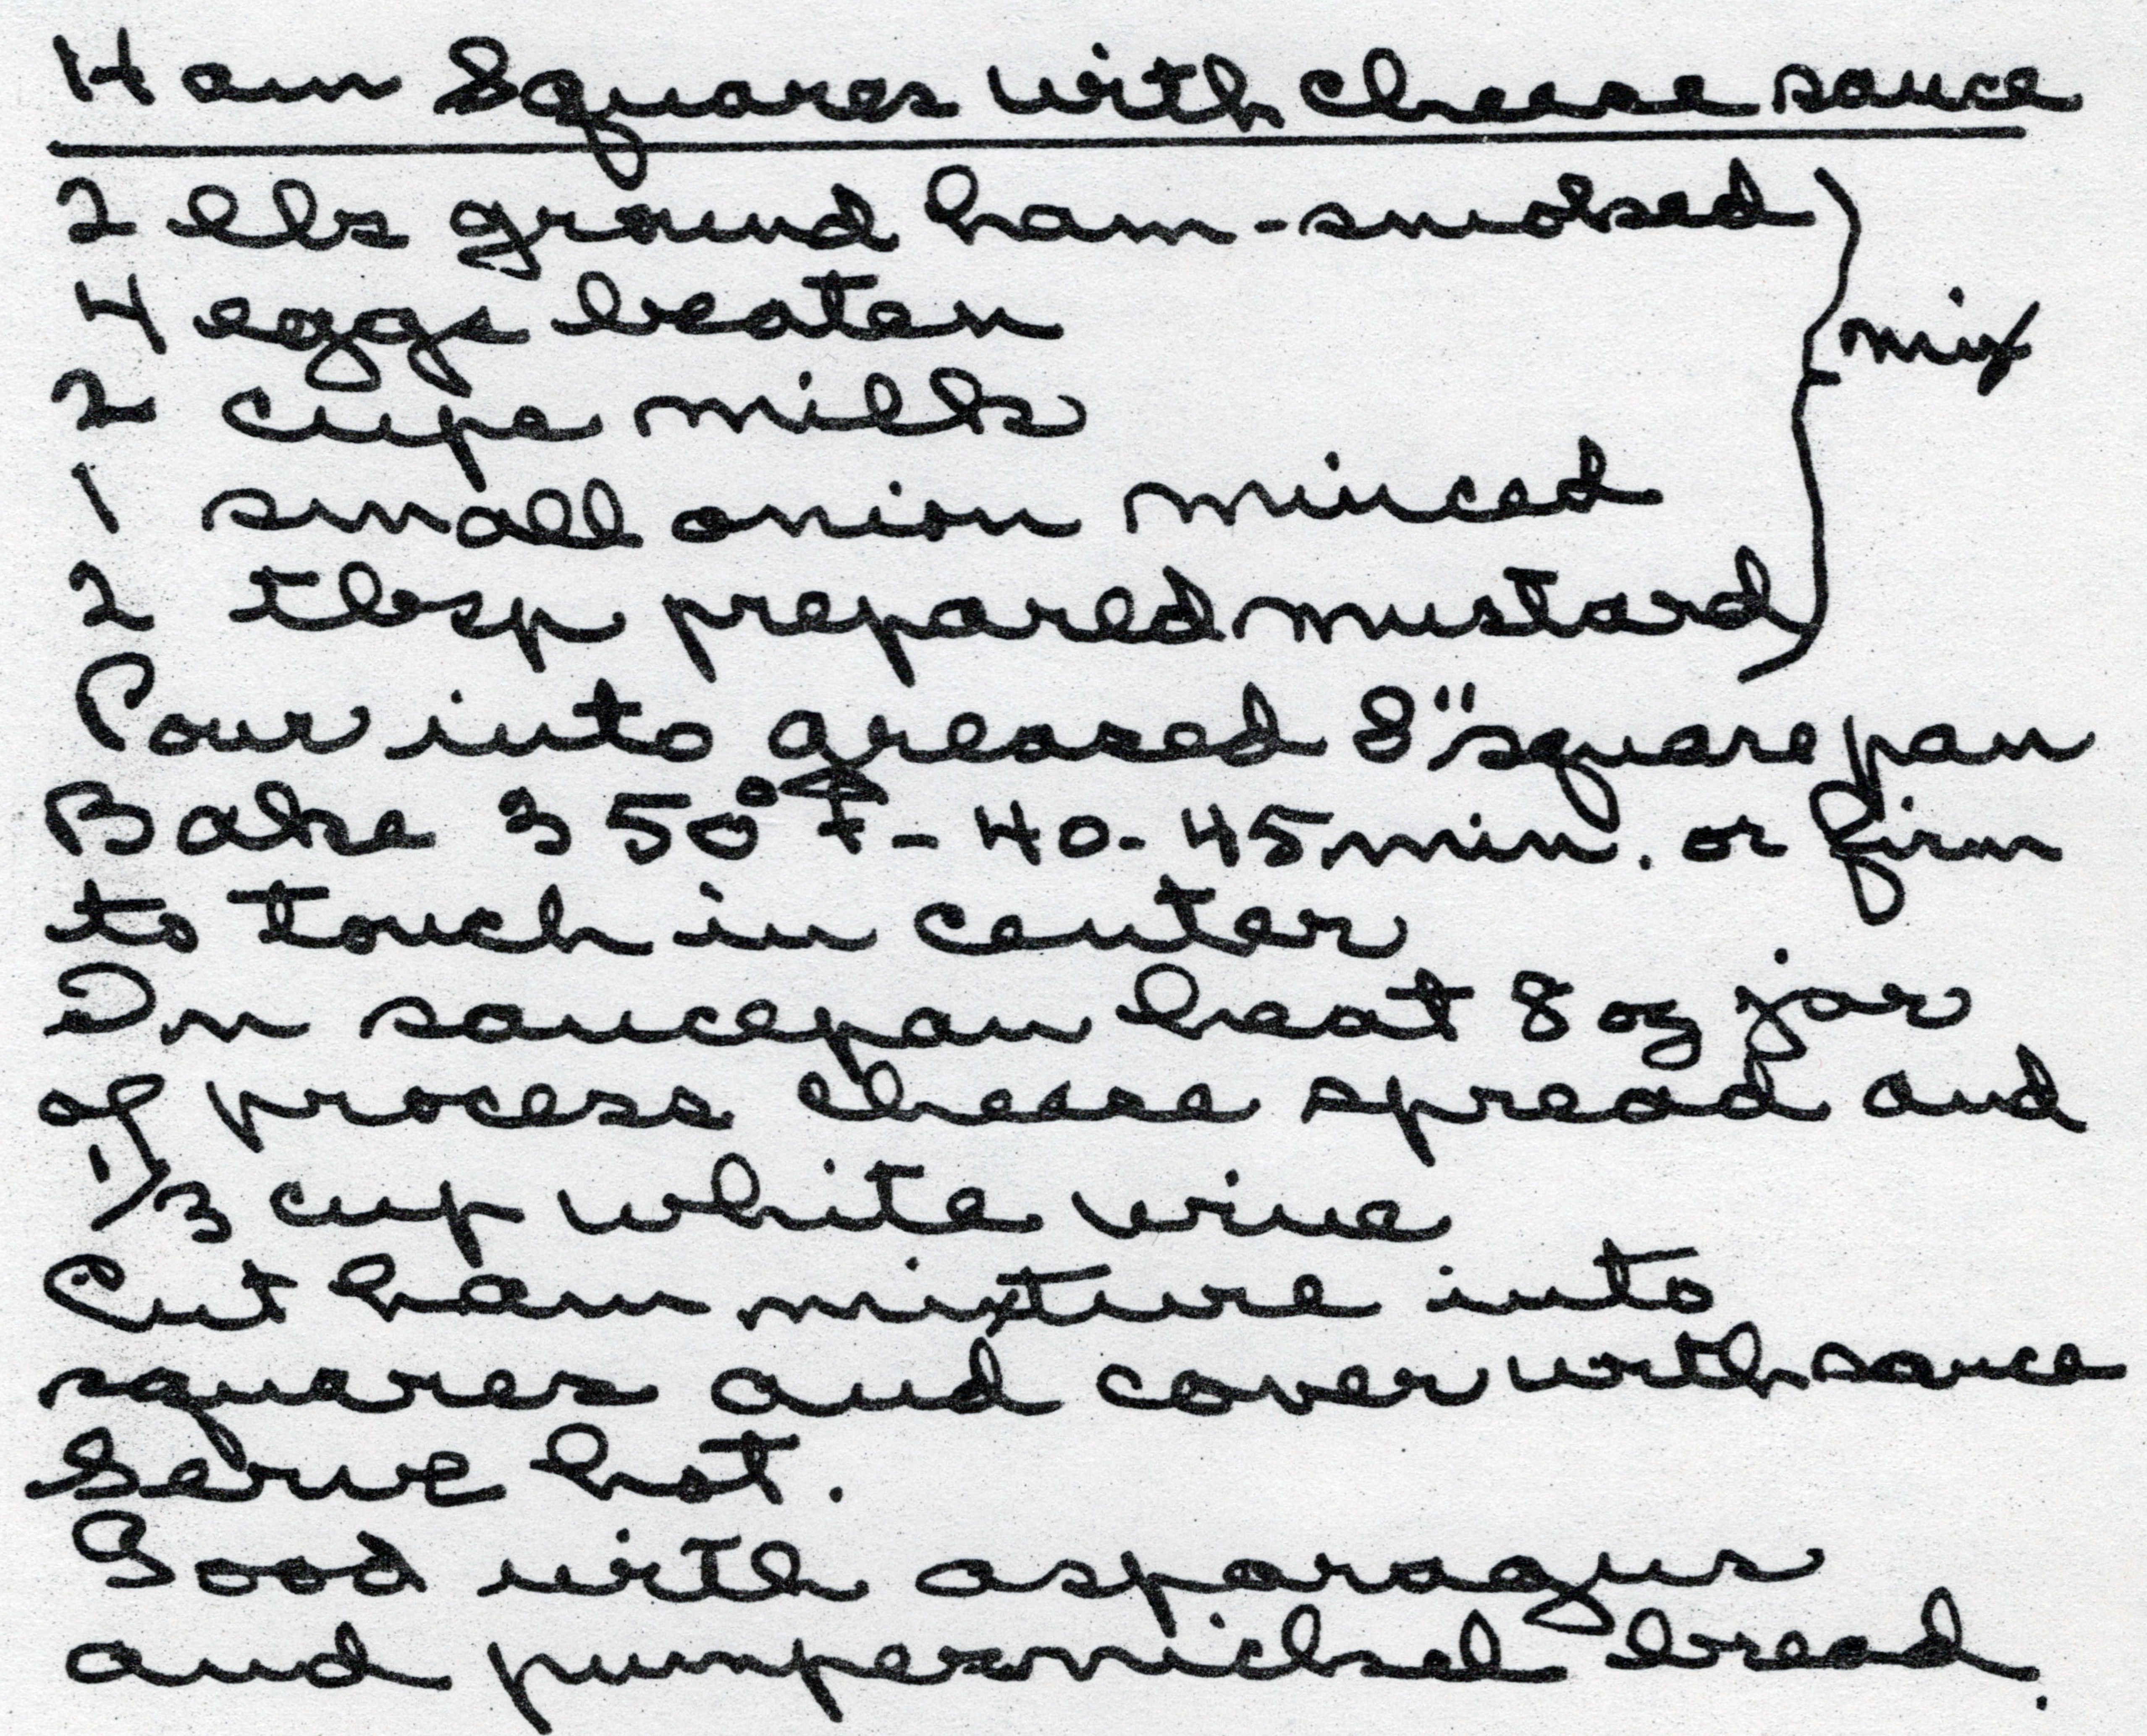 Ham Squares with cheese sauce
2 lbs ground ham-smoked
4 eggs beaten
mix
2 cups milk
1 small onion minced
2 tbsp prepared mustard
Pour into greased 8" square pan
Bake 350°F - 40-45 min. or firm
to touch in center
In saucepan heat 8 oz jar
of process cheese spread and
1/3 cup white wine
Cut ham mixture into
squares and cover with sauce
Serve hot.
Good with asparagus
and pumpernickel bread.